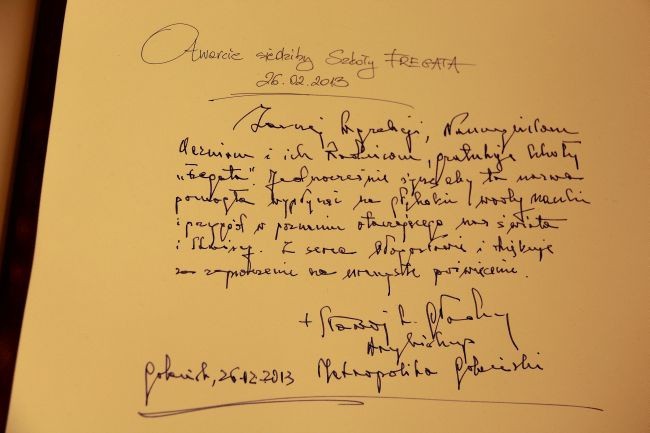 Otwarcie siedziby Szkoły FREGATA
26.02.2013
Zacnej Dyrekcji, Nauczycielom
Uczniom i ich Rodzicom, gratuluję Szkoły
„Fregata". Jednocześnie życzę aby ta nazwa
pomogła wypłynąć na głębokie wody nauki
i przygód w poznaniu otaczającego nas świata
i . Z serca błogosławię i dziękuję
za zaproszenie na uroczyste poświęcenie.
+ Sławoj L. Głódź
Arcybiskup
Gdańsk, 26.02.2013 Metropolita Gdański